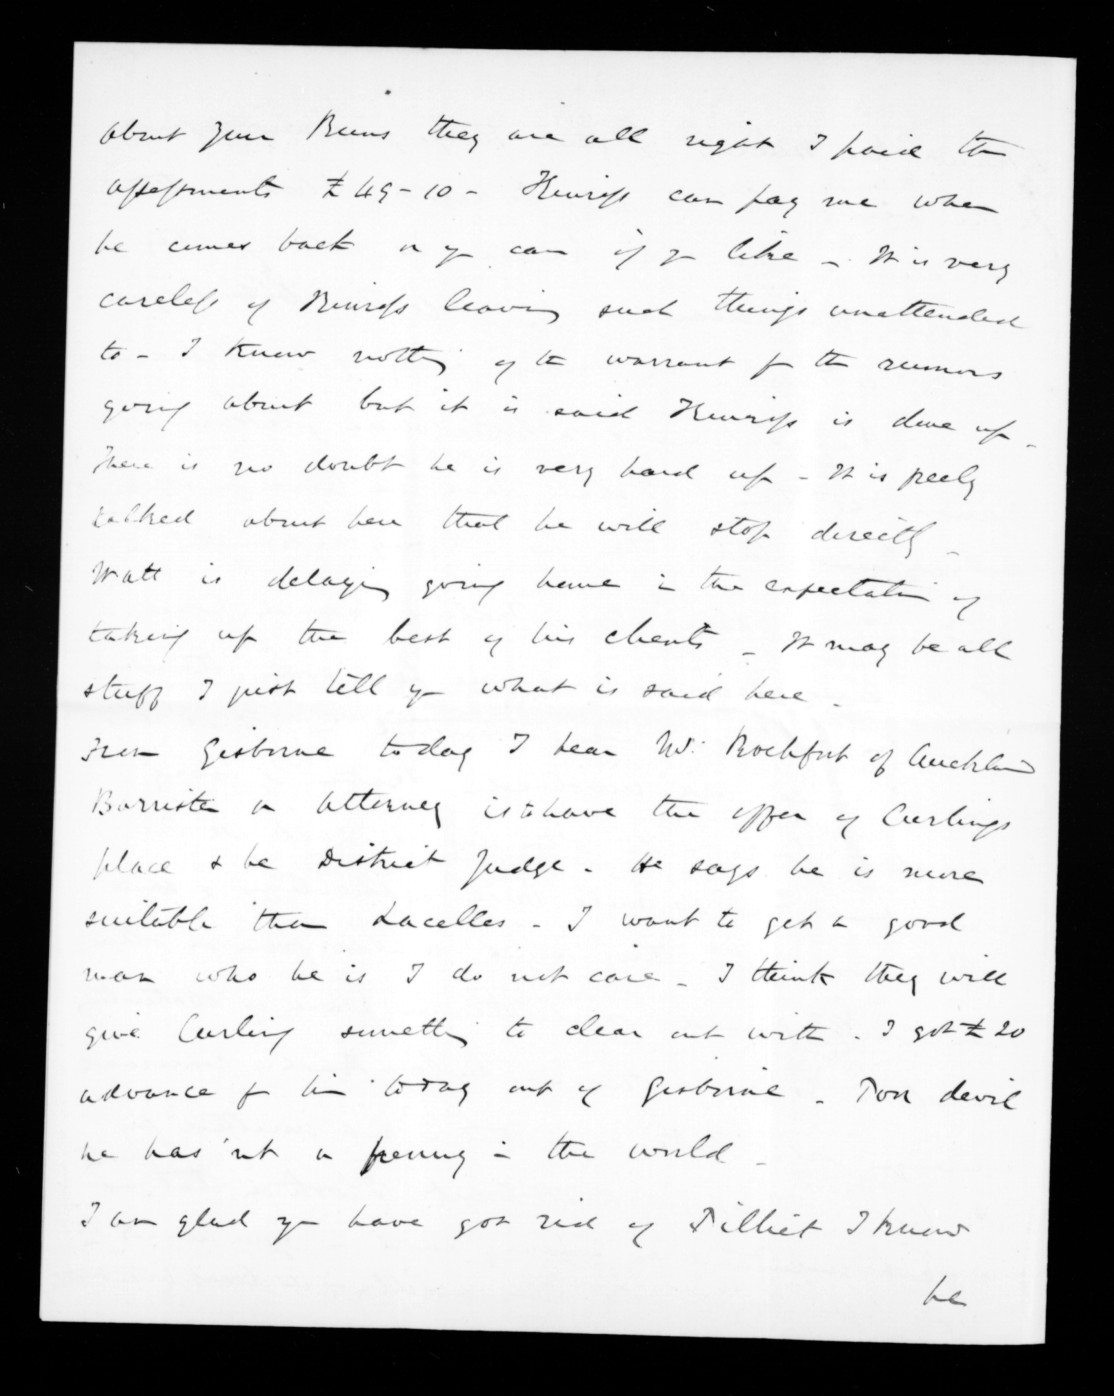 about your Runs they are all right I paid the
assessments £49-10- Kinross can pay me when
he comes back or you can if you like - It is very
careless of Kinross leaving such things unattended
to - I know nothing of the warrant for the rumors
going about but it is said Kinross is done up -
There is no doubt he is very hard up - It is freely
talked about here that he will stop directly -
Watt is delaying going home in the expectation of
taking up the best of his clients - It may be all
stuff I just tell you what is said here -
From Gisborne today I hear Mr. Rochfort of Auckland
Barrister or Attorney is to have the offer of Curlings
place & be District Judge - He says he is more
suitable than Lacelles - I want to get a good
man who he is I do not care - I think they will
give Curling something to clear out with - I got £20
advance for him today out of Gisborne - Poor devil
he has'nt a penny in the world -
I am glad you have got rid of Tilliet I know
he